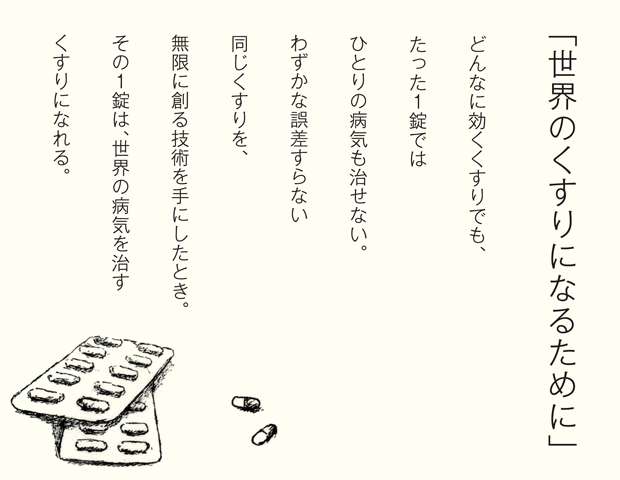 「世界のくすりになるために」
どんなに効くくすりでも、
たった1錠では
ひとりの病気も治せない。
わずかな誤差すらない
同じくすりを、
無限に創る技術を手にしたとき。
その1錠は、世界の病気を治す
くすりになれる。